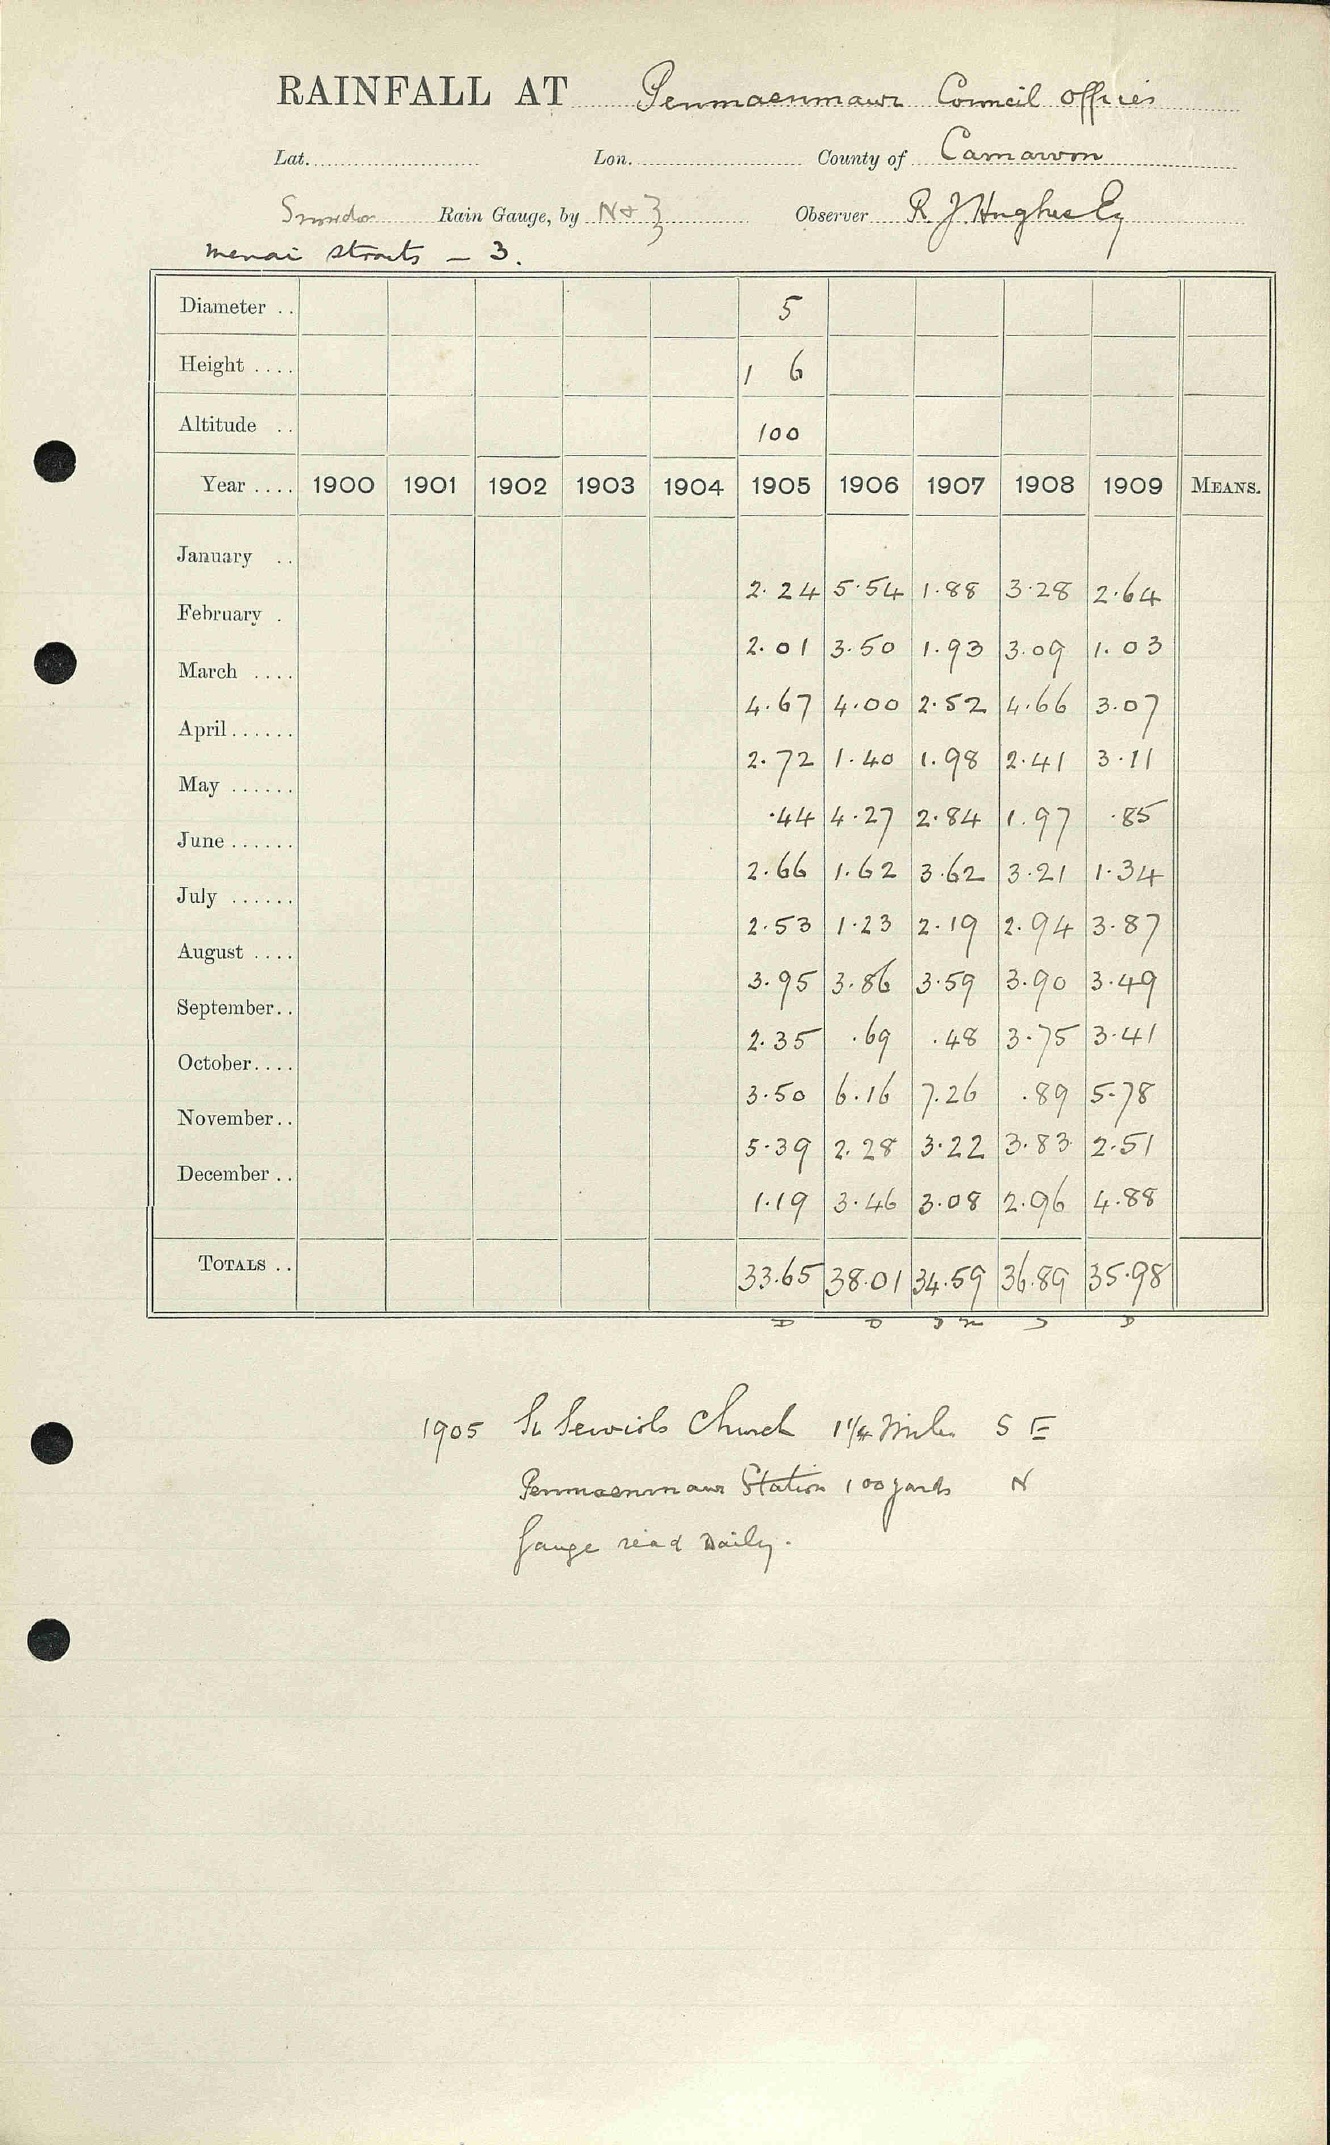 RAINFALL AT Penmaenmawr Council offices
Lat. Lon. County of Carnarvon
Snowdon Rain Gauge, by N & Z Observer R. J Hughes Esq
Menai straits – 3.
Diameter .. 5
Height .... 1 6
Altitude .. 100
Year .... 1900 1901 1902 1903 1904 1905 1906 1907 1908 1909 MEANS.
January .. 2.24 5.54 1.88 3.28 2.64
February . 2.01 3.50 1.93 3.09 1.03
March .... 4.67 4.00 2.52 4.66 3.07
April...... 2.72 1.40 1.98 2.41 3.11
May ...... .44 4.27 2.84 1.97 .85
June...... 2.66 1.62 3.62 3.21 1.34
July ...... 2.53 1.23 2.19 2.94 3.87
August .... 3.95 3.86 3.59 3.90 3.49
September.. 2.35 .69 .48 3.75 3.41
October.... 3.50 6.16 7.26 .89 5.78
November.. 5.39 2.28 3.22 3.83 2.51
December .. 1.19 3.46 3.08 2.96 4.88
TOTALS .. 33.65 38.01 34.59 36.89 35.98
1905 St Seiriols Church 1 1/4 Miles S E
Penmaenmawr Station 100 yards N
Gauge read Daily.